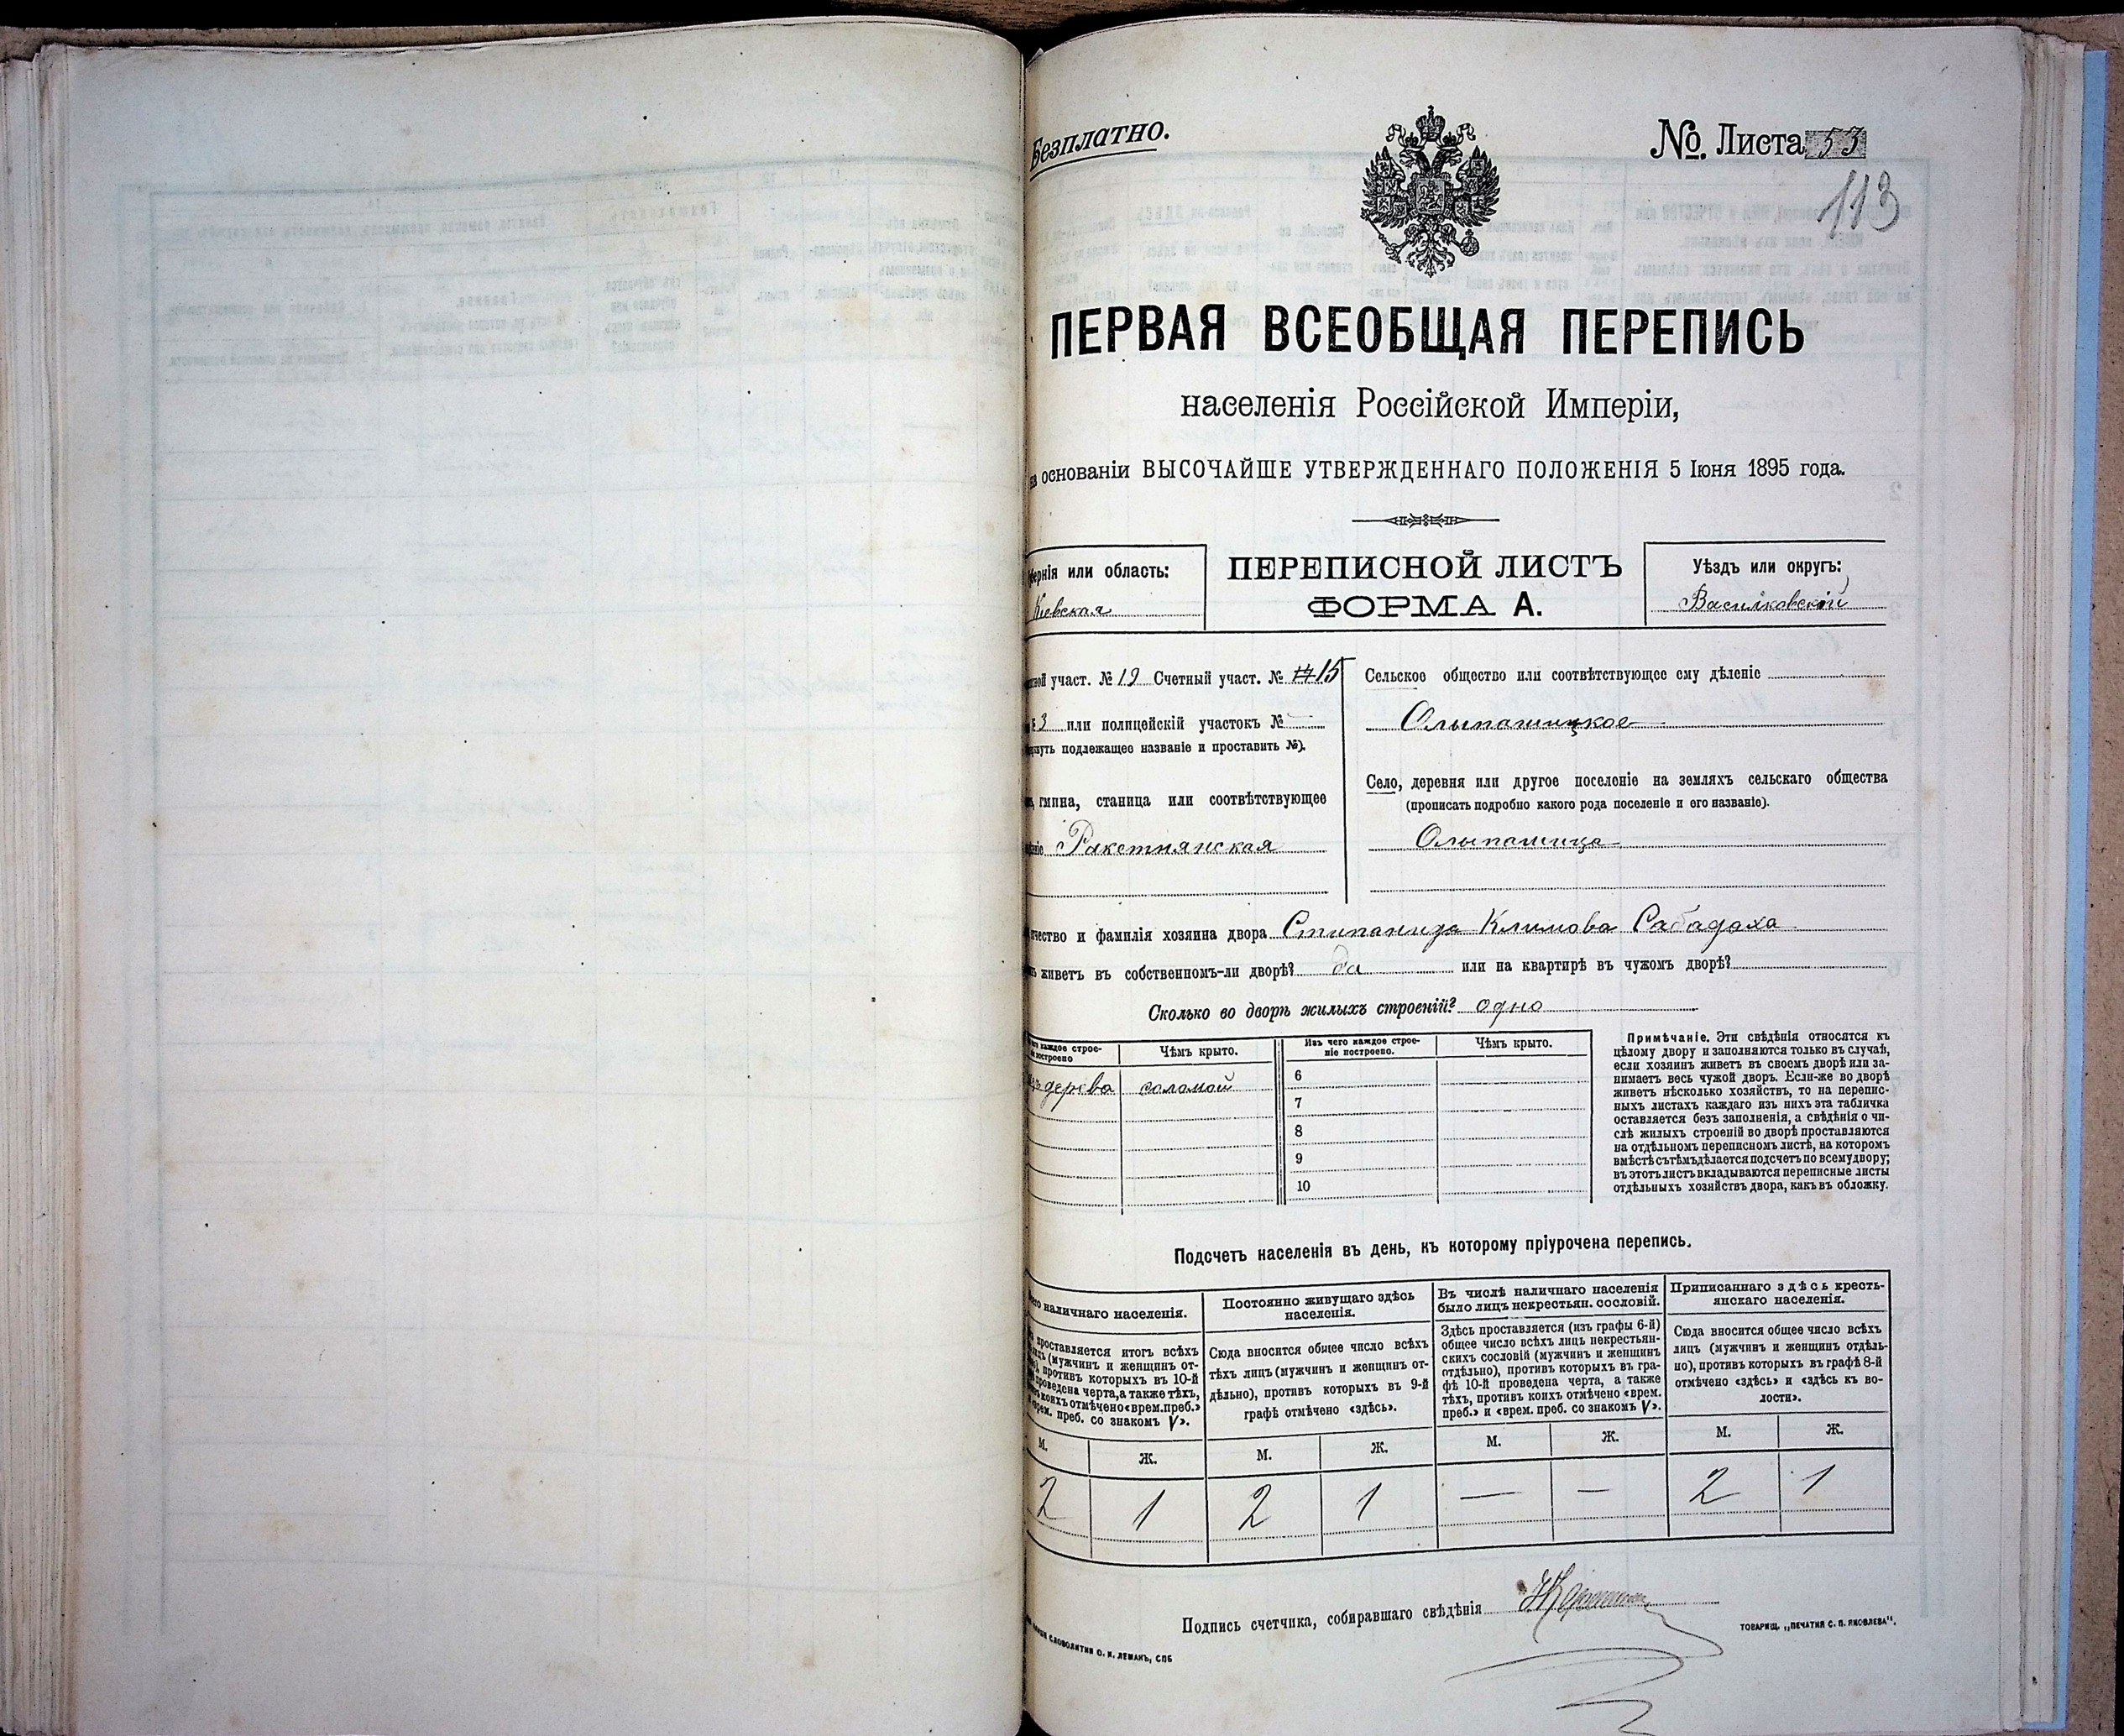 Безплатно.
№ Листа 53
113
ПЕРВАЯ ВСЕОБЩАЯ ПЕРЕПИСЬ
населенія Россійской Имперіи,
на основаніи ВЫСОЧАЙШЕ УТВЕРЖДЕННАГО ПОЛОЖЕНІЯ 5 Іюня 1895 года.
бернія или область:
Кіевская
ПЕРЕПИСНОЙ ЛИСТЪ
ФОРМА А.
Уѣздъ или округъ:
Васильковскій
участ. № 19 Счетный участ. № 15
3 или полицейскій участокъ №
подлежащее названіе и проставить №).
гмина, станица или соотвѣтствующее
Ракетнянская
Сельское общество или соотвѣтствующее ему дѣленіе
Ольшаницкое
Село, деревня или другое поселеніе на земляхъ сельскаго общества
(прописать подробно какого рода поселеніе и его названіе).
Ольшаница
чество и фамилія хозяина двора Стипанида Климова Сабадаха
живетъ въ собственномъ-ли дворѣ? да или на квартирѣ въ чужомъ дворѣ?
Сколько во дворѣ жилыхъ строеній? одно
каждое строе-
построено
Чѣмъ крыто.
Изъ чего каждое строе-
ніе построено.
Чѣмъ крыто.
дерева соломой
6
7
8
9
10
Примѣчаніе. Эти свѣдѣнія относятся къ
цѣлому двору и заполняются только въ случаѣ,
если хозяинъ живетъ въ своемъ дворѣ или за-
нимаетъ весь чужой дворъ. Если-же во дворѣ
живетъ нѣсколько хозяйствъ, то на перепис-
ныхъ листахъ каждаго изъ нихъ эта табличка
оставляется безъ заполненія, а свѣдѣнія о чи-
слѣ жилыхъ строеній во дворѣ проставляются
на отдѣльномъ переписномъ листѣ, на которомъ
вмѣстѣ съ тѣмъ дѣлается подсчетъ по всему двору;
въ этотъ листъ вкладываются переписные листы
отдѣльныхъ хозяйствъ двора, какъ въ обложку.
Подсчетъ населенія въ день, къ которому пріурочена перепись.
наличнаго населенія.
проставляется итогъ всѣхъ
(мужчинъ и женщинъ от-
противъ которыхъ въ 10-й
проведена черта, а также тѣхъ,
коихъ отмѣчено «врем. преб.»
врем. преб. со знакомъ V».
Постоянно живущаго здѣсь
населенія.
Сюда вносится общее число всѣхъ
тѣхъ лицъ (мужчинъ и женщинъ от-
дѣльно), противъ которыхъ въ 9-й
графѣ отмѣчено «здѣсь».
Въ числѣ наличнаго населенія
было лицъ некрестьян. сословій.
Здѣсь проставляется (изъ графы 6-й)
общее число всѣхъ лицъ некрестьян-
скихъ сословій (мужчинъ и женщинъ
отдѣльно), противъ которыхъ въ гра-
фѣ 10-й проведена черта, а также
тѣхъ, противъ коихъ отмѣчено «врем.
преб.» и «врем. преб. со знакомъ V».
Приписаннаго здѣсь кресть-
янскаго населенія.
Сюда вносится общее число всѣхъ
лицъ (мужчинъ и женщинъ отдѣль-
но), противъ которыхъ въ графѣ 8-й
отмѣчено «здѣсь» и «здѣсь къ во-
лости».
М. Ж. М. Ж. М. Ж. М. Ж.
2 1 2 1 — — 2 1
Подпись счетчика, собиравшаго свѣдѣнія
словолитни О. И. ЛЕМАНЪ, СПБ
ТОВАРИЩ. „ПЕЧАТНЯ С. П. ЯКОВЛЕВА".